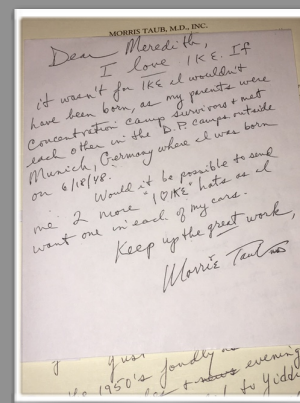 MORRIS TAUB, M.D., INC.
Dear Meredith,
I love IKE. If
it wasn't for IKE I wouldn't
have been born, as my parents were
concentration camp survivors & met
each other in the D.P. camps outside
Munich, Germany where I was born
on 6/18/48.
Would it be possible to send
me 2 more "I ♡ IKE" hats as I
want one in each of my cars.
Keep up the great work,
Morrie Taub MD
the 1950's fondly
evening
to Yiddi